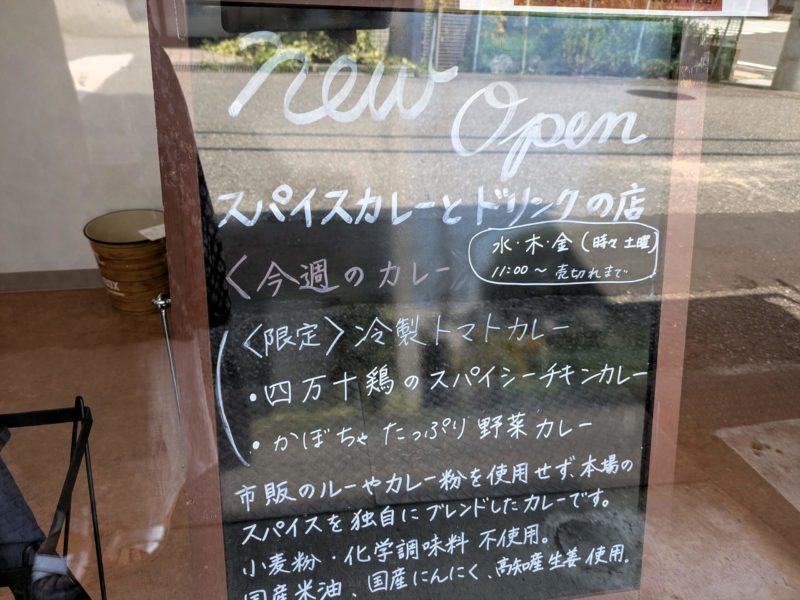 New Open
スパイスカレーとドリンクの店
水・木・金(時々土曜)
11:00～売切れまで
〈今週のカレー〉
〈限定〉冷製トマトカレー
・四万十鶏のスパイシーチキンカレー
・かぼちゃたっぷり野菜カレー
市販のルーやカレー粉を使用せず、本場の
スパイスを独自にブレンドしたカレーです。
小麦粉・化学調味料不使用。
国産米油、国産にんにく、高知産生姜使用。